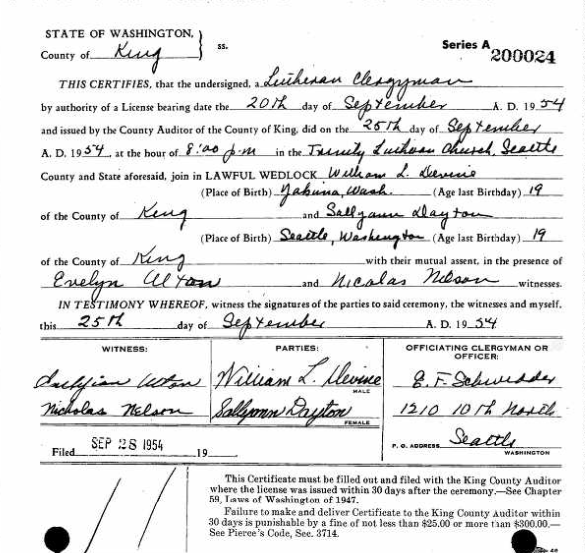 STATE OF WASHINGTON, } ss.
County of King
Series A 200024
THIS CERTIFIES, that the undersigned, a Lutheran Clergyman
by authority of a License bearing date the 20th day of September A. D. 1954
and issued by the County Auditor of the County of King, did on the 25th day of September
A. D. 1954, at the hour of 8:00 p.m in the Trinity Lutheran Church, Seattle
County and State aforesaid, join in LAWFUL WEDLOCK William L. Devine
(Place of Birth) Yakima, Wash. (Age last Birthday) 19
of the County of King and Sallyann Dayton
(Place of Birth) Seattle, Washington (Age last Birthday) 19
of the County of King with their mutual assent, in the presence of
Evelyn Alton and Nicolas Nelson witnesses.
IN TESTIMONY WHEREOF, witness the signatures of the parties to said ceremony, the witnesses and myself,
this 25th day of September A. D. 1954
WITNESS: PARTIES: OFFICIATING CLERGYMAN OR OFFICER:
Alton William L. Devine E. F.
MALE
Nicholas Nelson Sallyann Dayton 1210 10th North
FEMALE
P. O. ADDRESS Seattle
WASHINGTON
Filed SEP 28 1954 19
This Certificate must be filled out and filed with the King County Auditor
where the license was issued within 30 days after the ceremony.—See Chapter
59, Laws of Washington of 1947.
Failure to make and deliver Certificate to the King County Auditor within
30 days is punishable by a fine of not less than $25.00 or more than $300.00.—
See Pierce's Code, Sec. 3714.